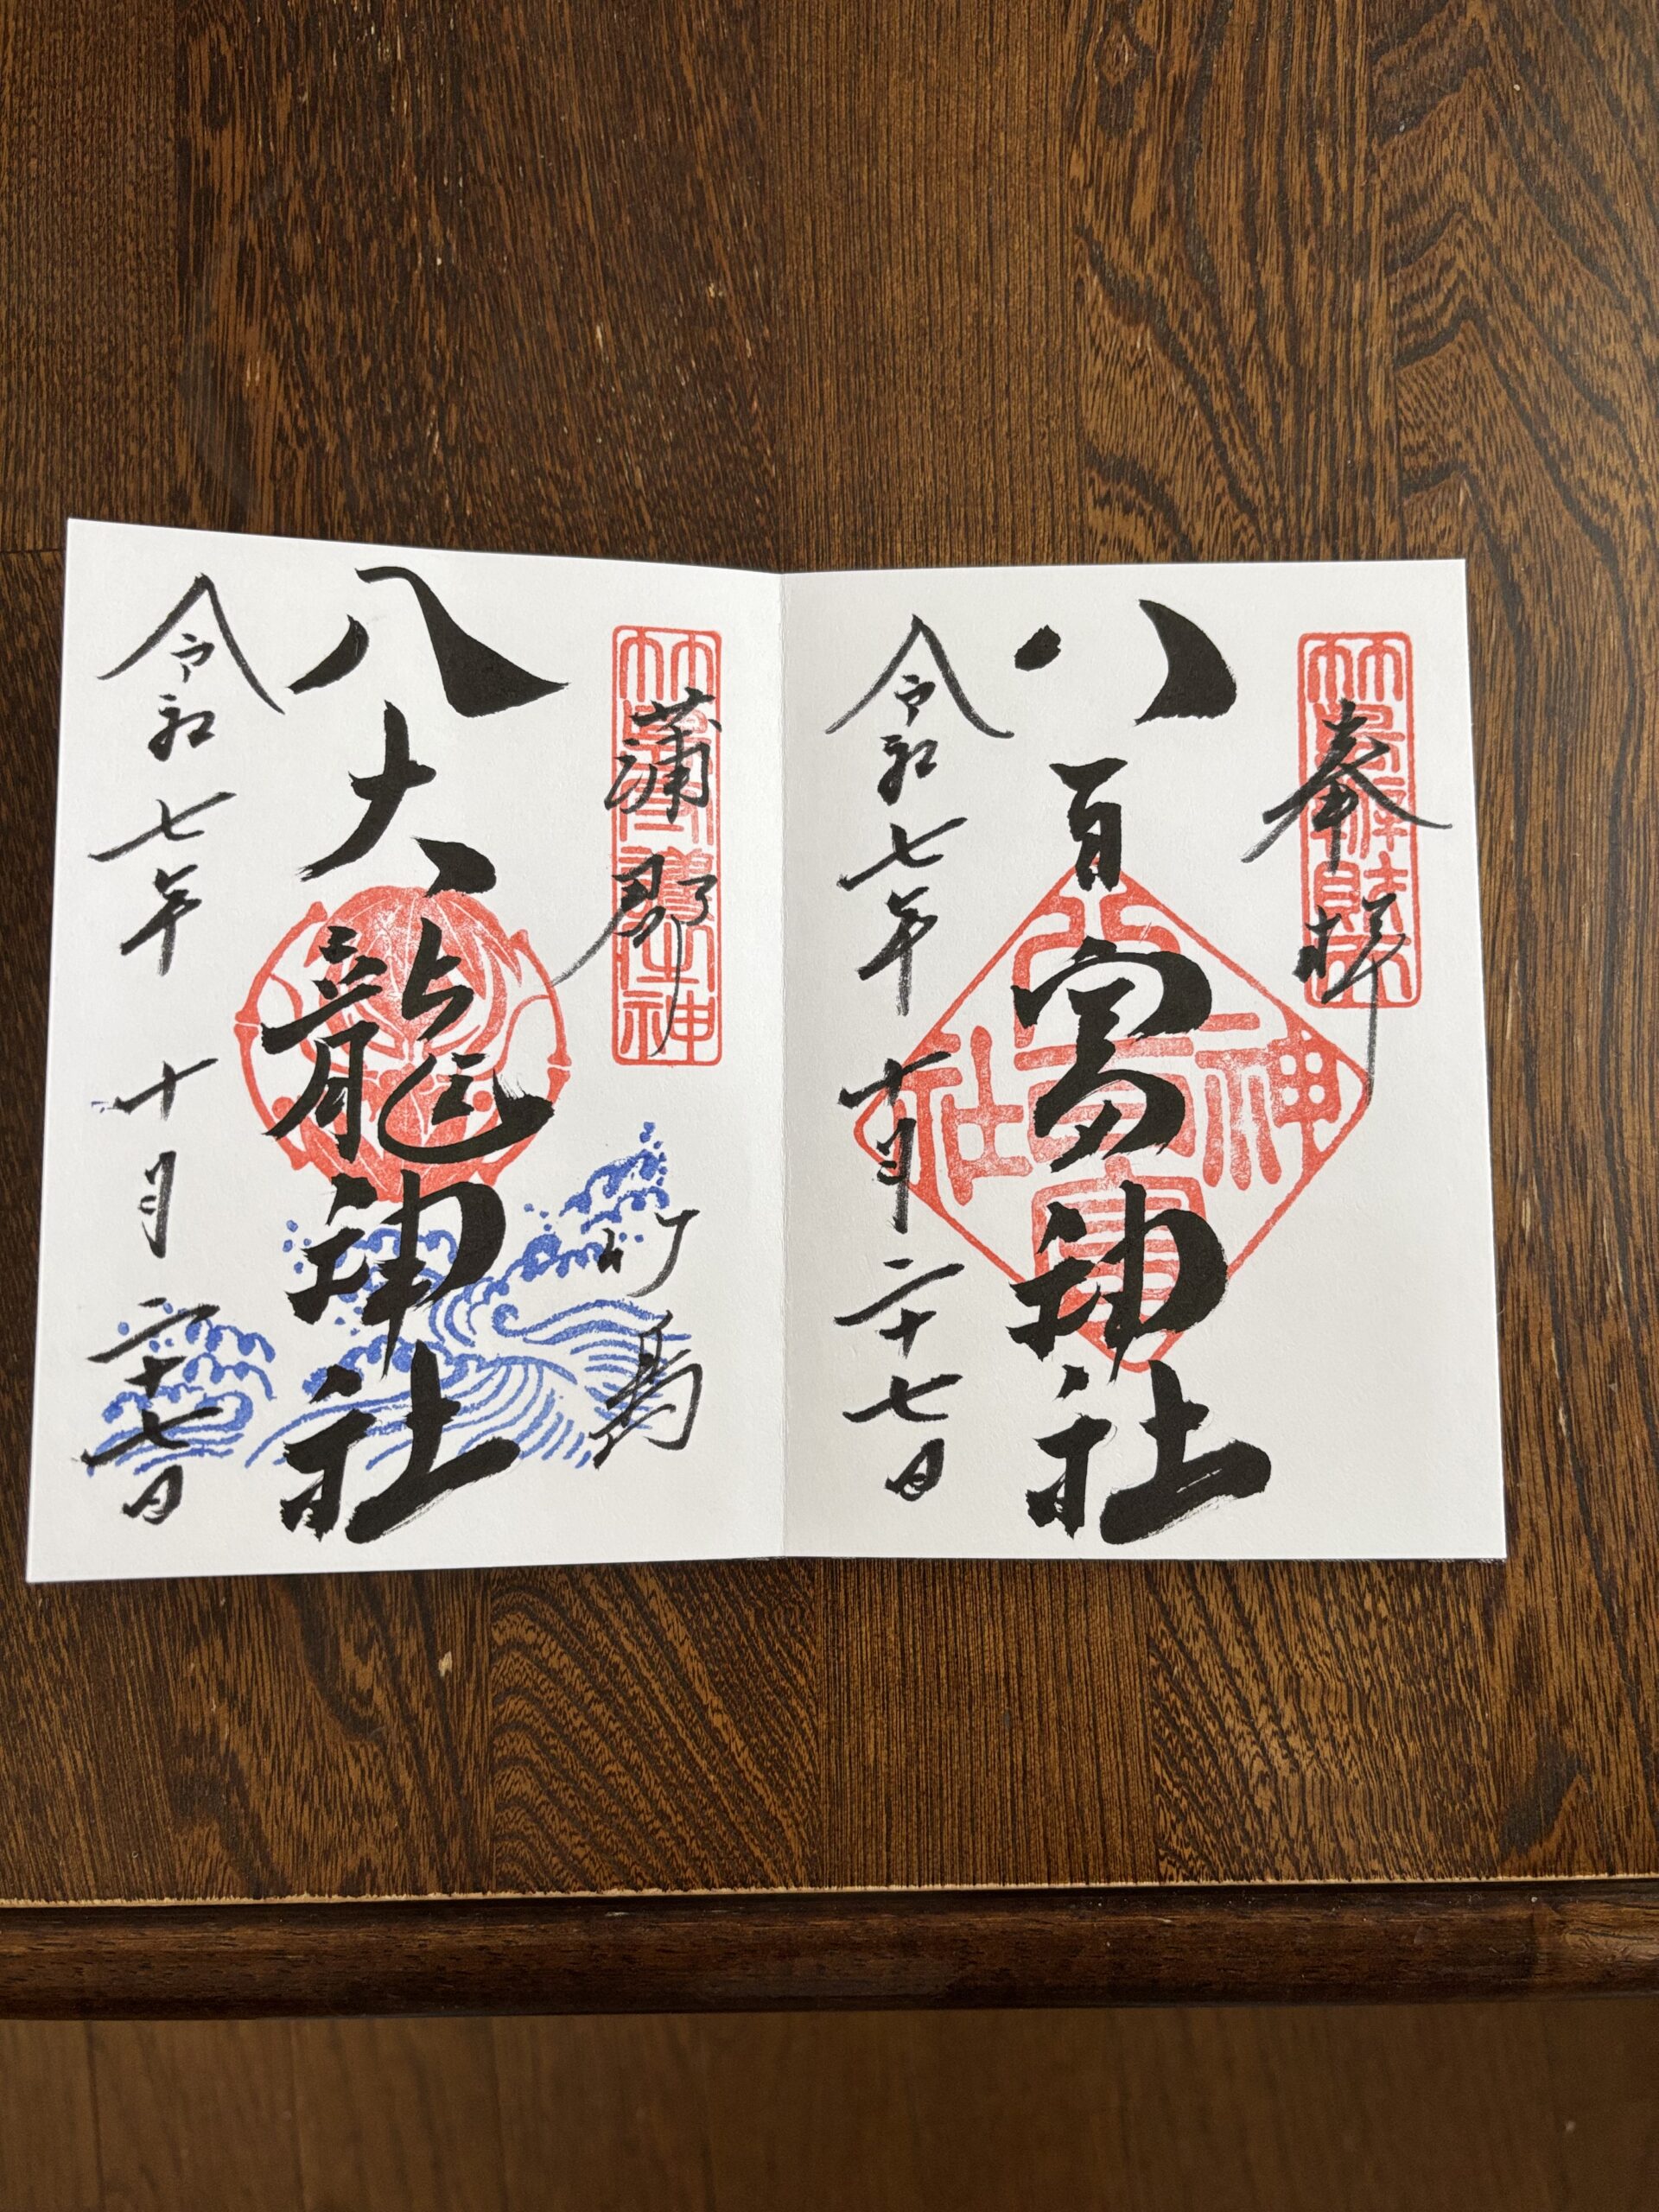 奉拝
竹島辨財天
八百富神社
八百富神社
令和七年十月二十七日
蒲郡 竹島
八大龍神社
令和七年十月二十七日